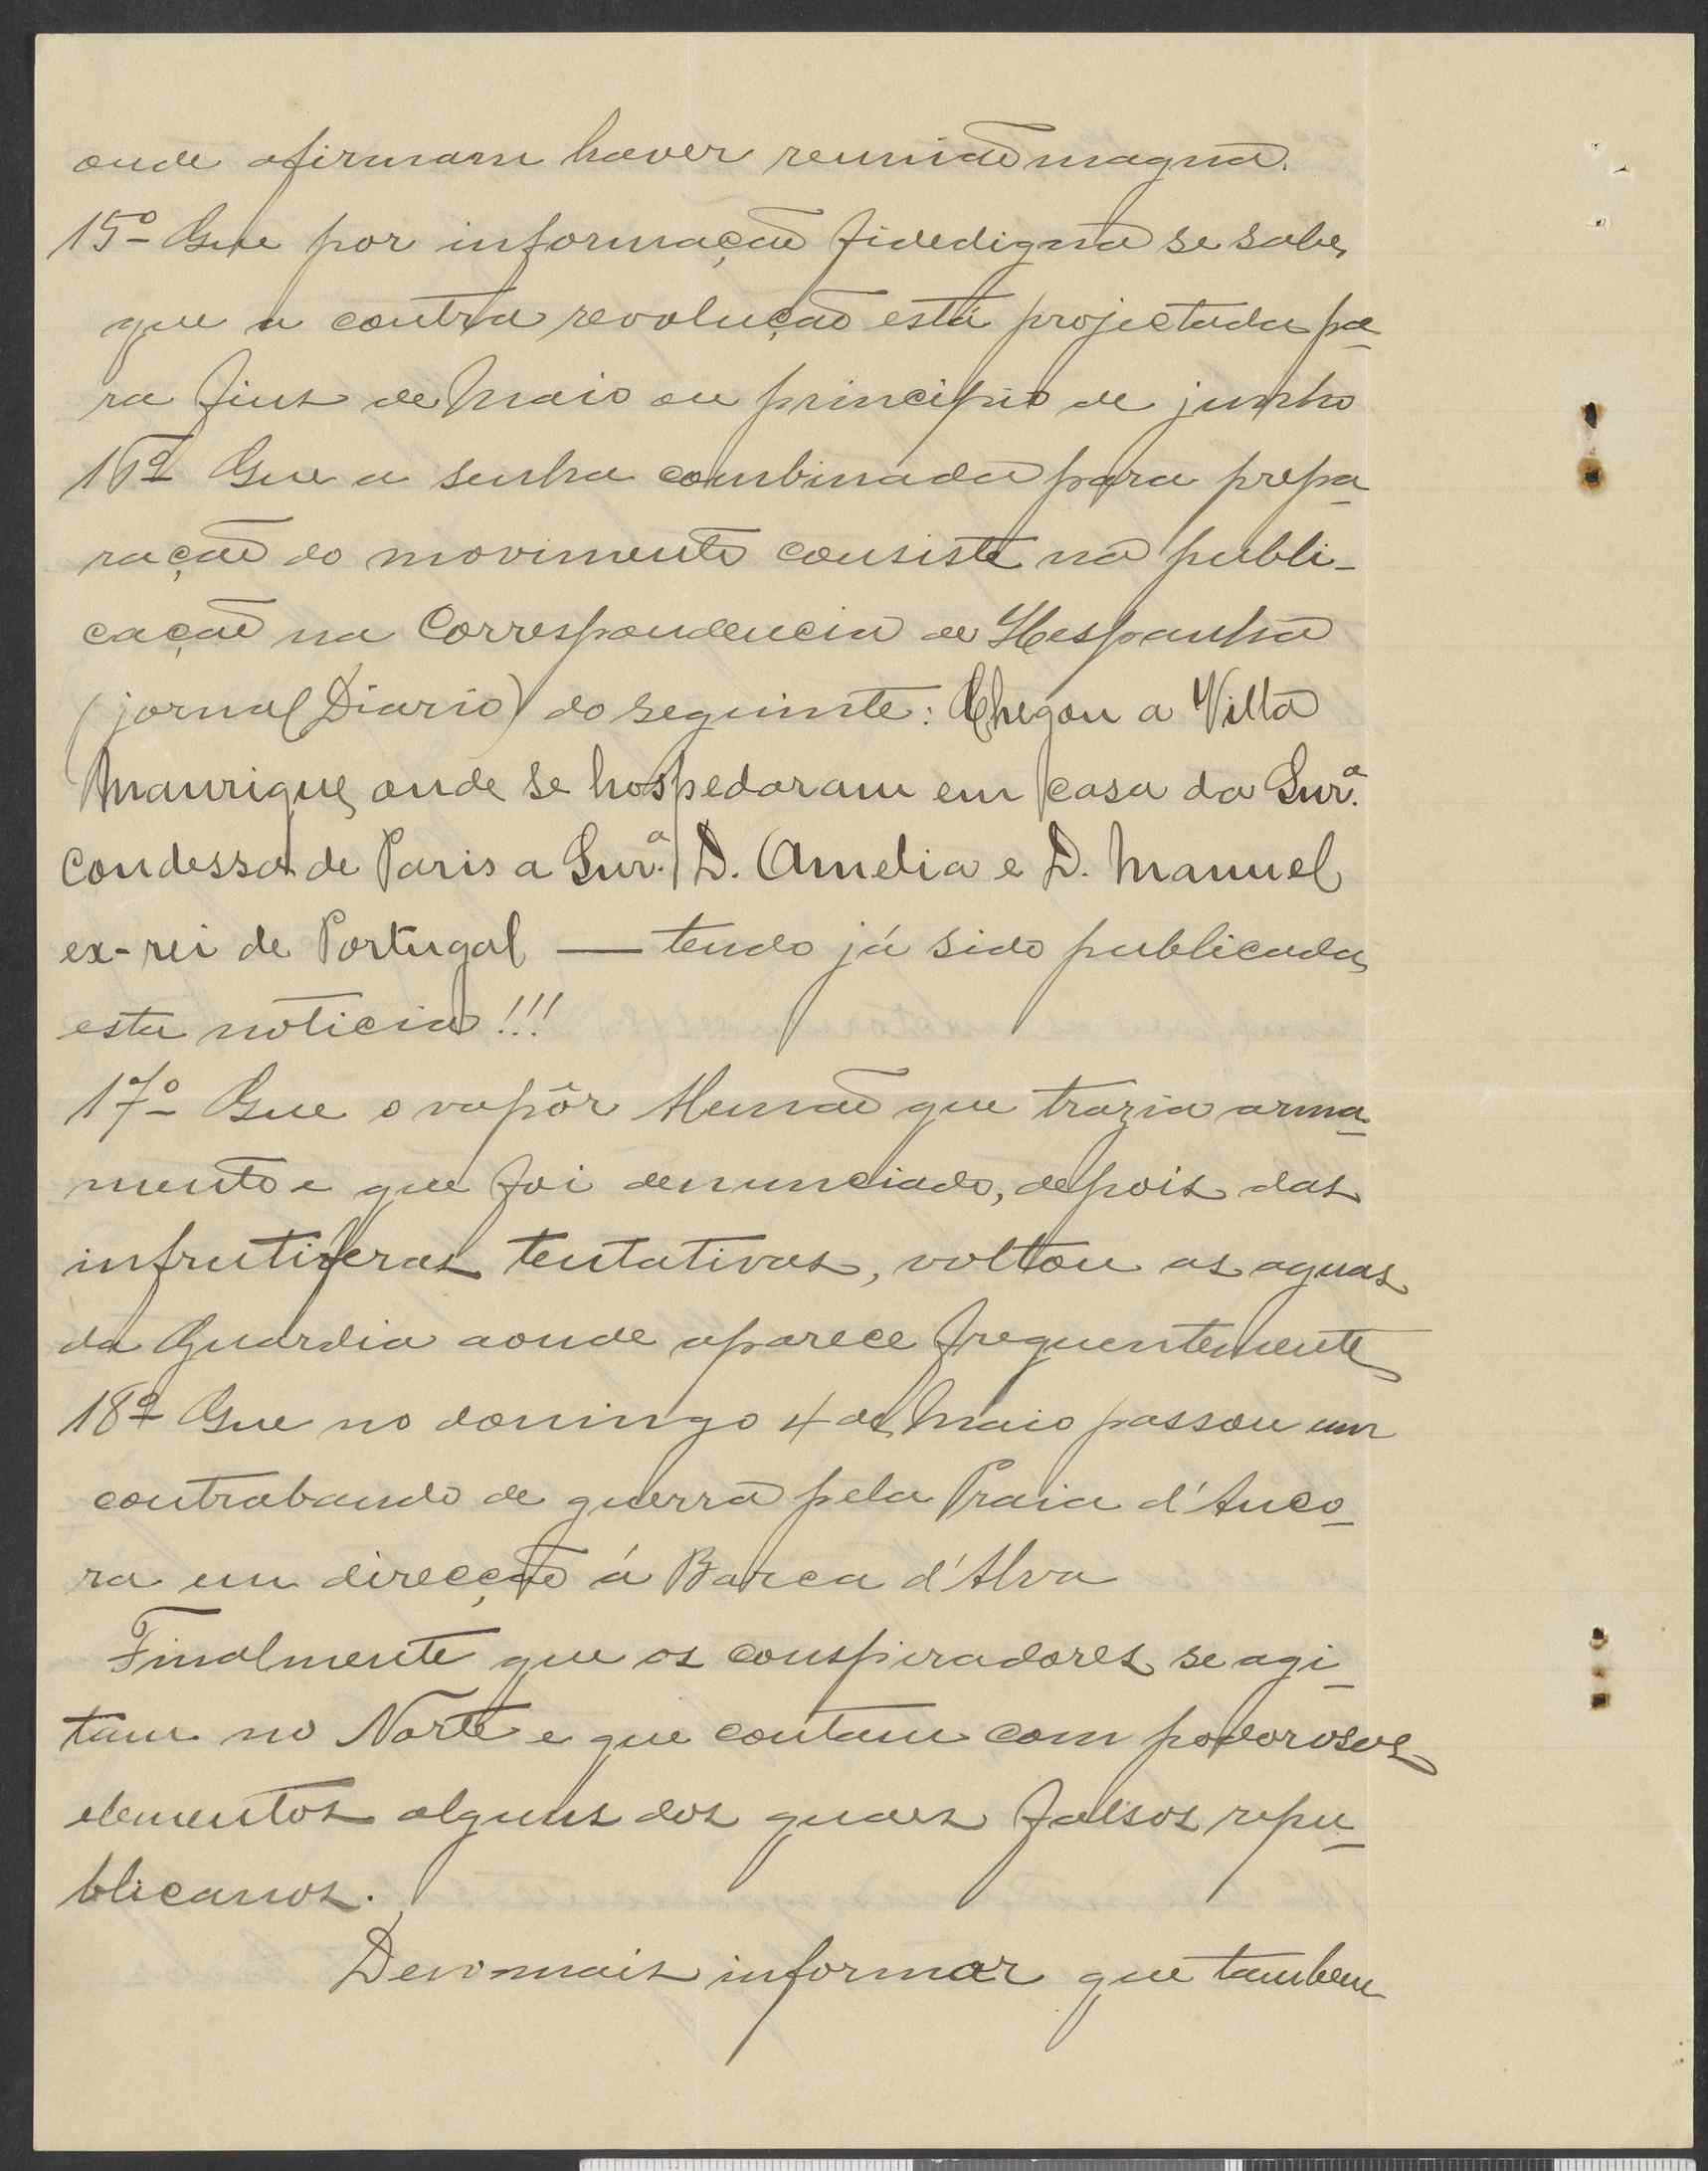 onde afirmam haver reunião magna.
15º- Que por informação fidedigna se sabe,
que a contra revolução está projectada pa-
ra fins de Maio ou principio de junho
16º Que a senha combinada para prepa-
ração do movimento consiste na publi-
cação na Correspondencia de Hespanha
(jornal Diario) do seguinte: Chegou a Villa
Manrique, onde se hospedaram em casa da Snr.ª
Condessa de Paris a Snr.ª D. Amelia e D. Manuel
ex-rei de Portugal — tendo já sido publicada
esta noticia!!!
17º- Que o vapôr Alemão que trazia arma-
mento e que foi denunciado, depois das
infrutiferas tentativas, voltou as aguas
da Guardia aonde aparece frequentemente
18º Que no domingo 4 de Maio passou um
contrabando de guerra pela Praia d'Anco-
ra em direcção á Barca d'Alva
Finalmente que os conspiradores se agi-
tam no Norte e que contam com poderosos
elementos alguns dos quaes falsos repu-
blicanos.
Devo mais informar que tambem